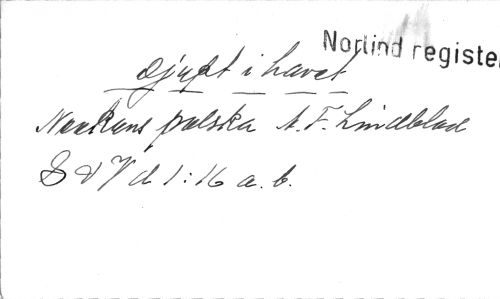 Norlind registe
Djupt i havet
Neckens polska A. F. Lindblad
S v V d 1:16 a. b.